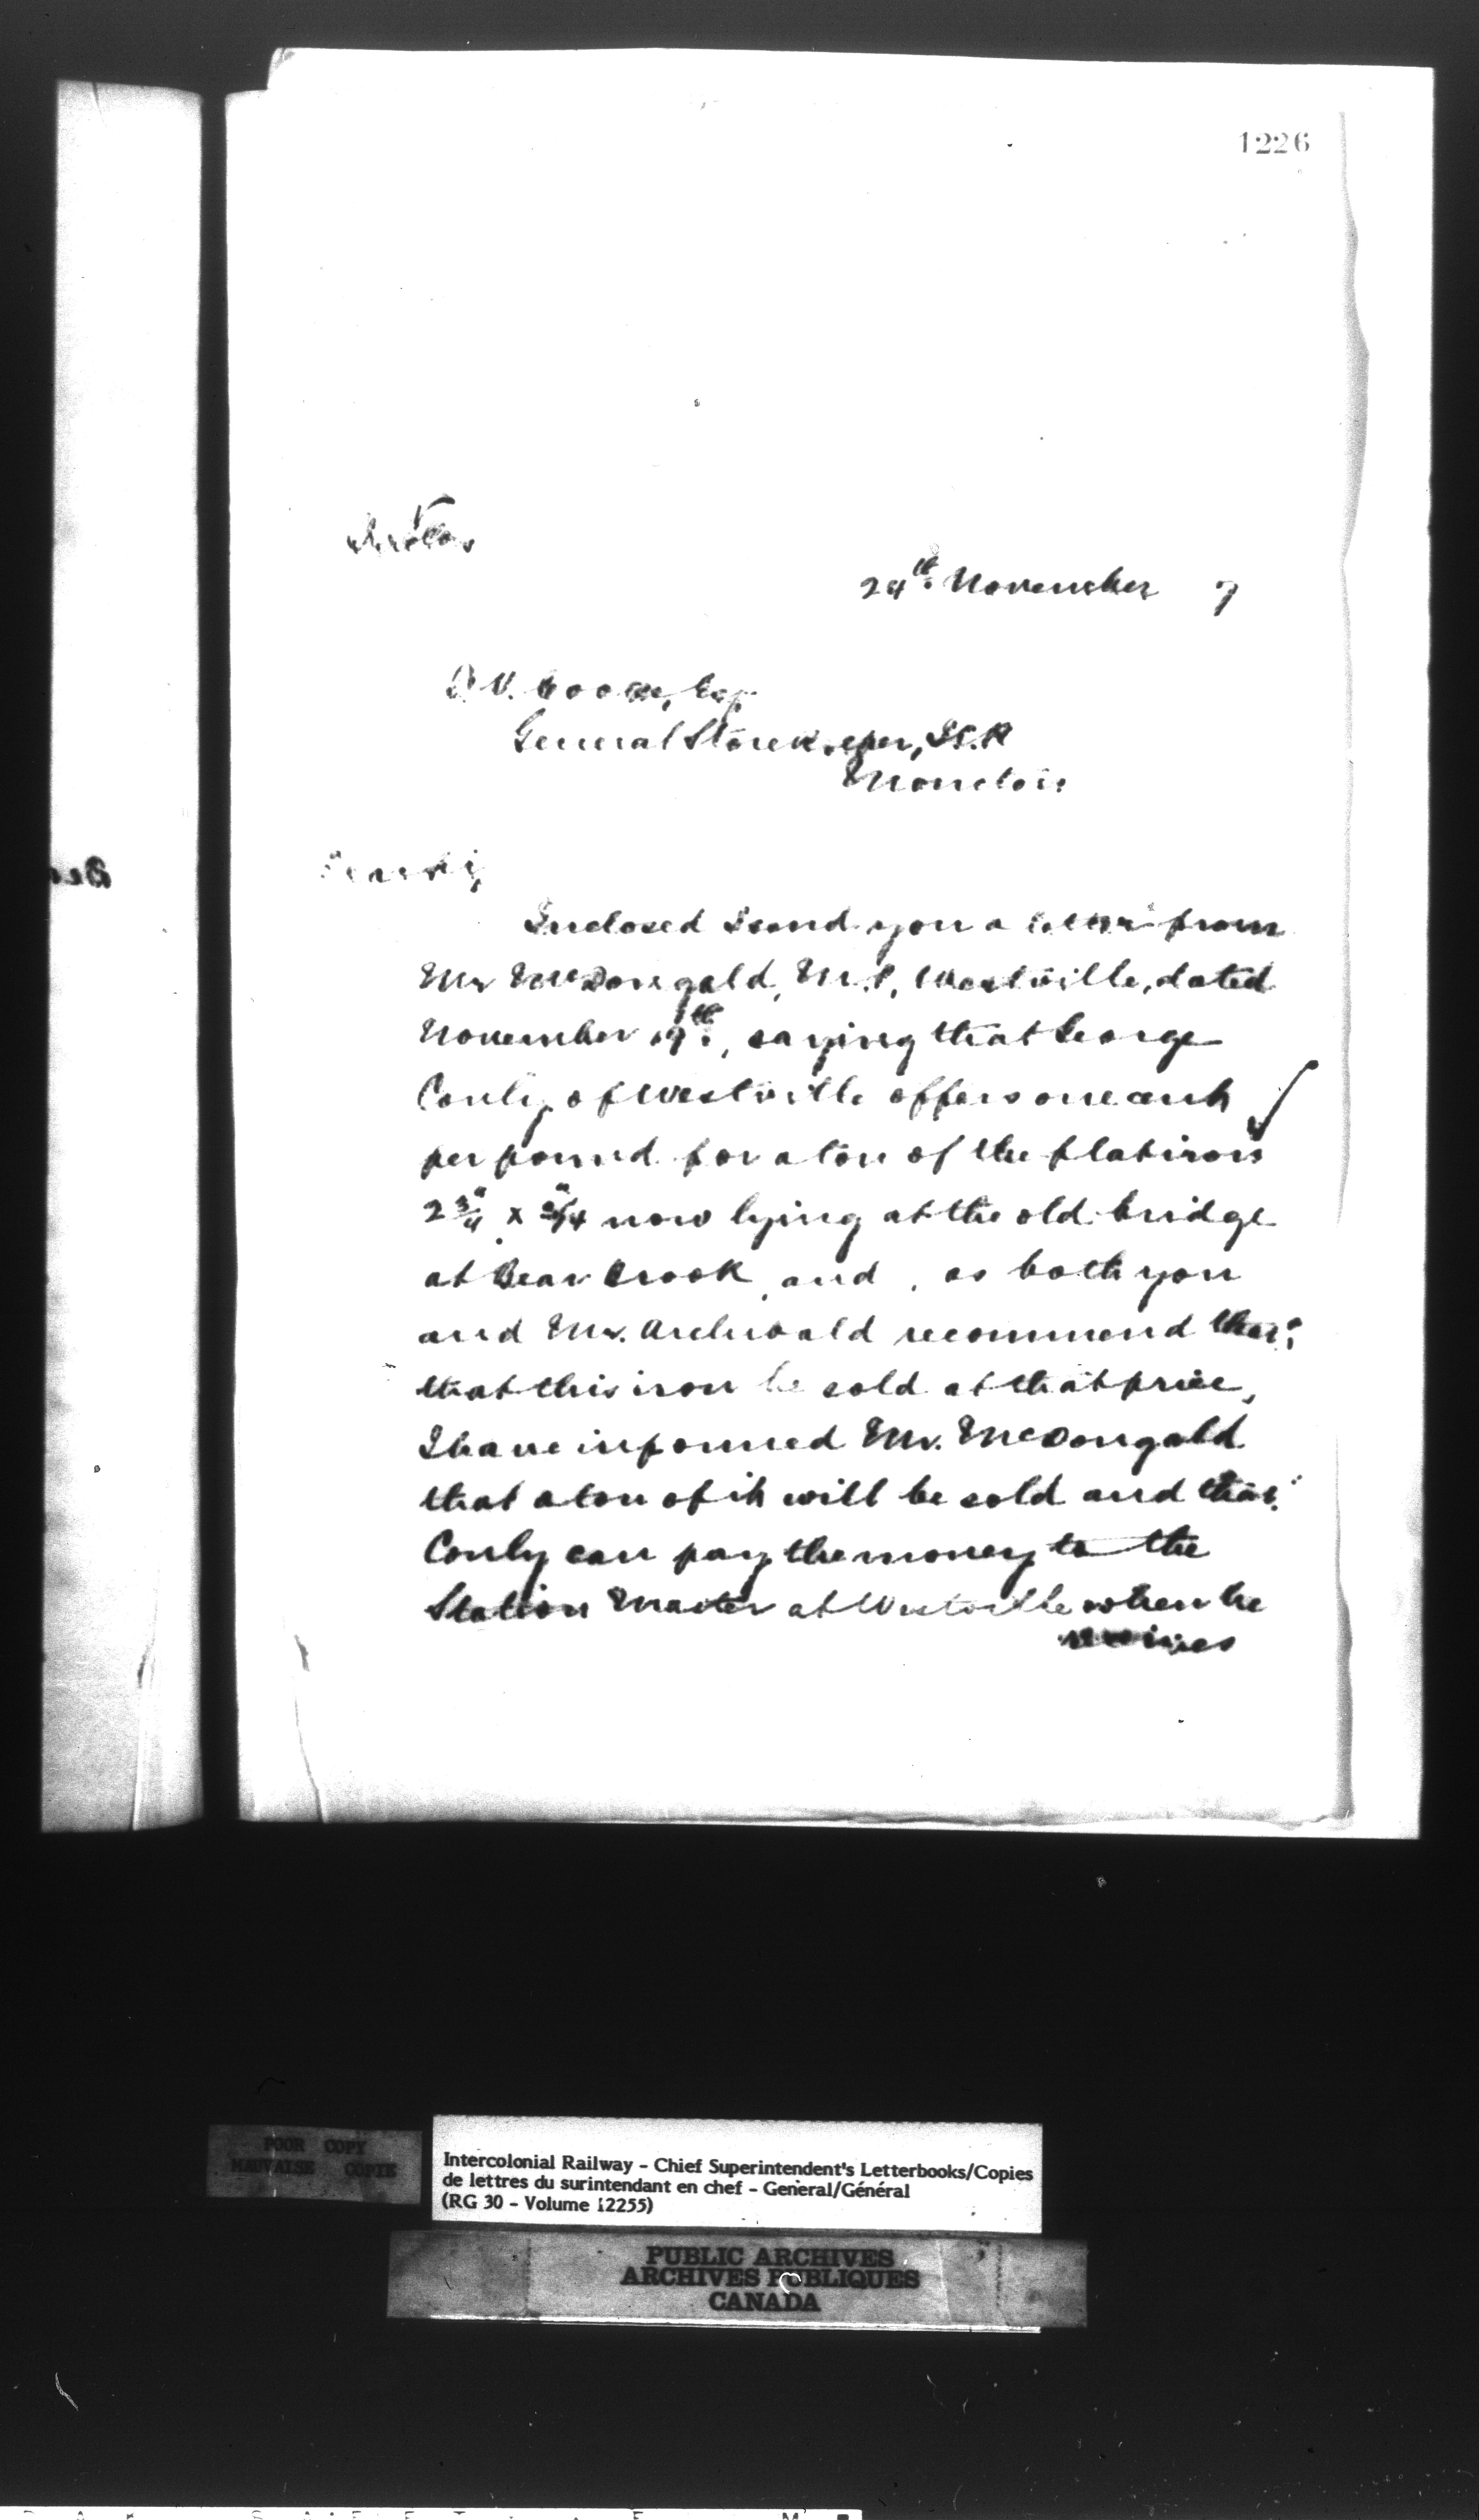 1226
24th November 7
T. V. Cooke, Esq
General Storekeeper, I.C.R
Moncton
Dear Sir,
Inclosed I send you a letter from
Mr McDougald, M.P., Westville, dated
November 19th, saying that George
Conly of Westville offers one cent
per pound for a ton of the flat iron
2 3/4" x 3/4" now lying at the old bridge
at Bear Brook, and, as both you
and Mr. Archibald recommend
that this iron be sold at that price,
I have informed Mr. McDougald
that a ton of it will be sold and that
Conly can pay the money to the
Station Master at Westville when he
receives
POOR COPY
MAUVAISE COPIE
Intercolonial Railway - Chief Superintendent's Letterbooks/Copies
de lettres du surintendant en chef - General/Général
(RG 30 - Volume 12255)
PUBLIC ARCHIVES
ARCHIVES PUBLIQUES
CANADA